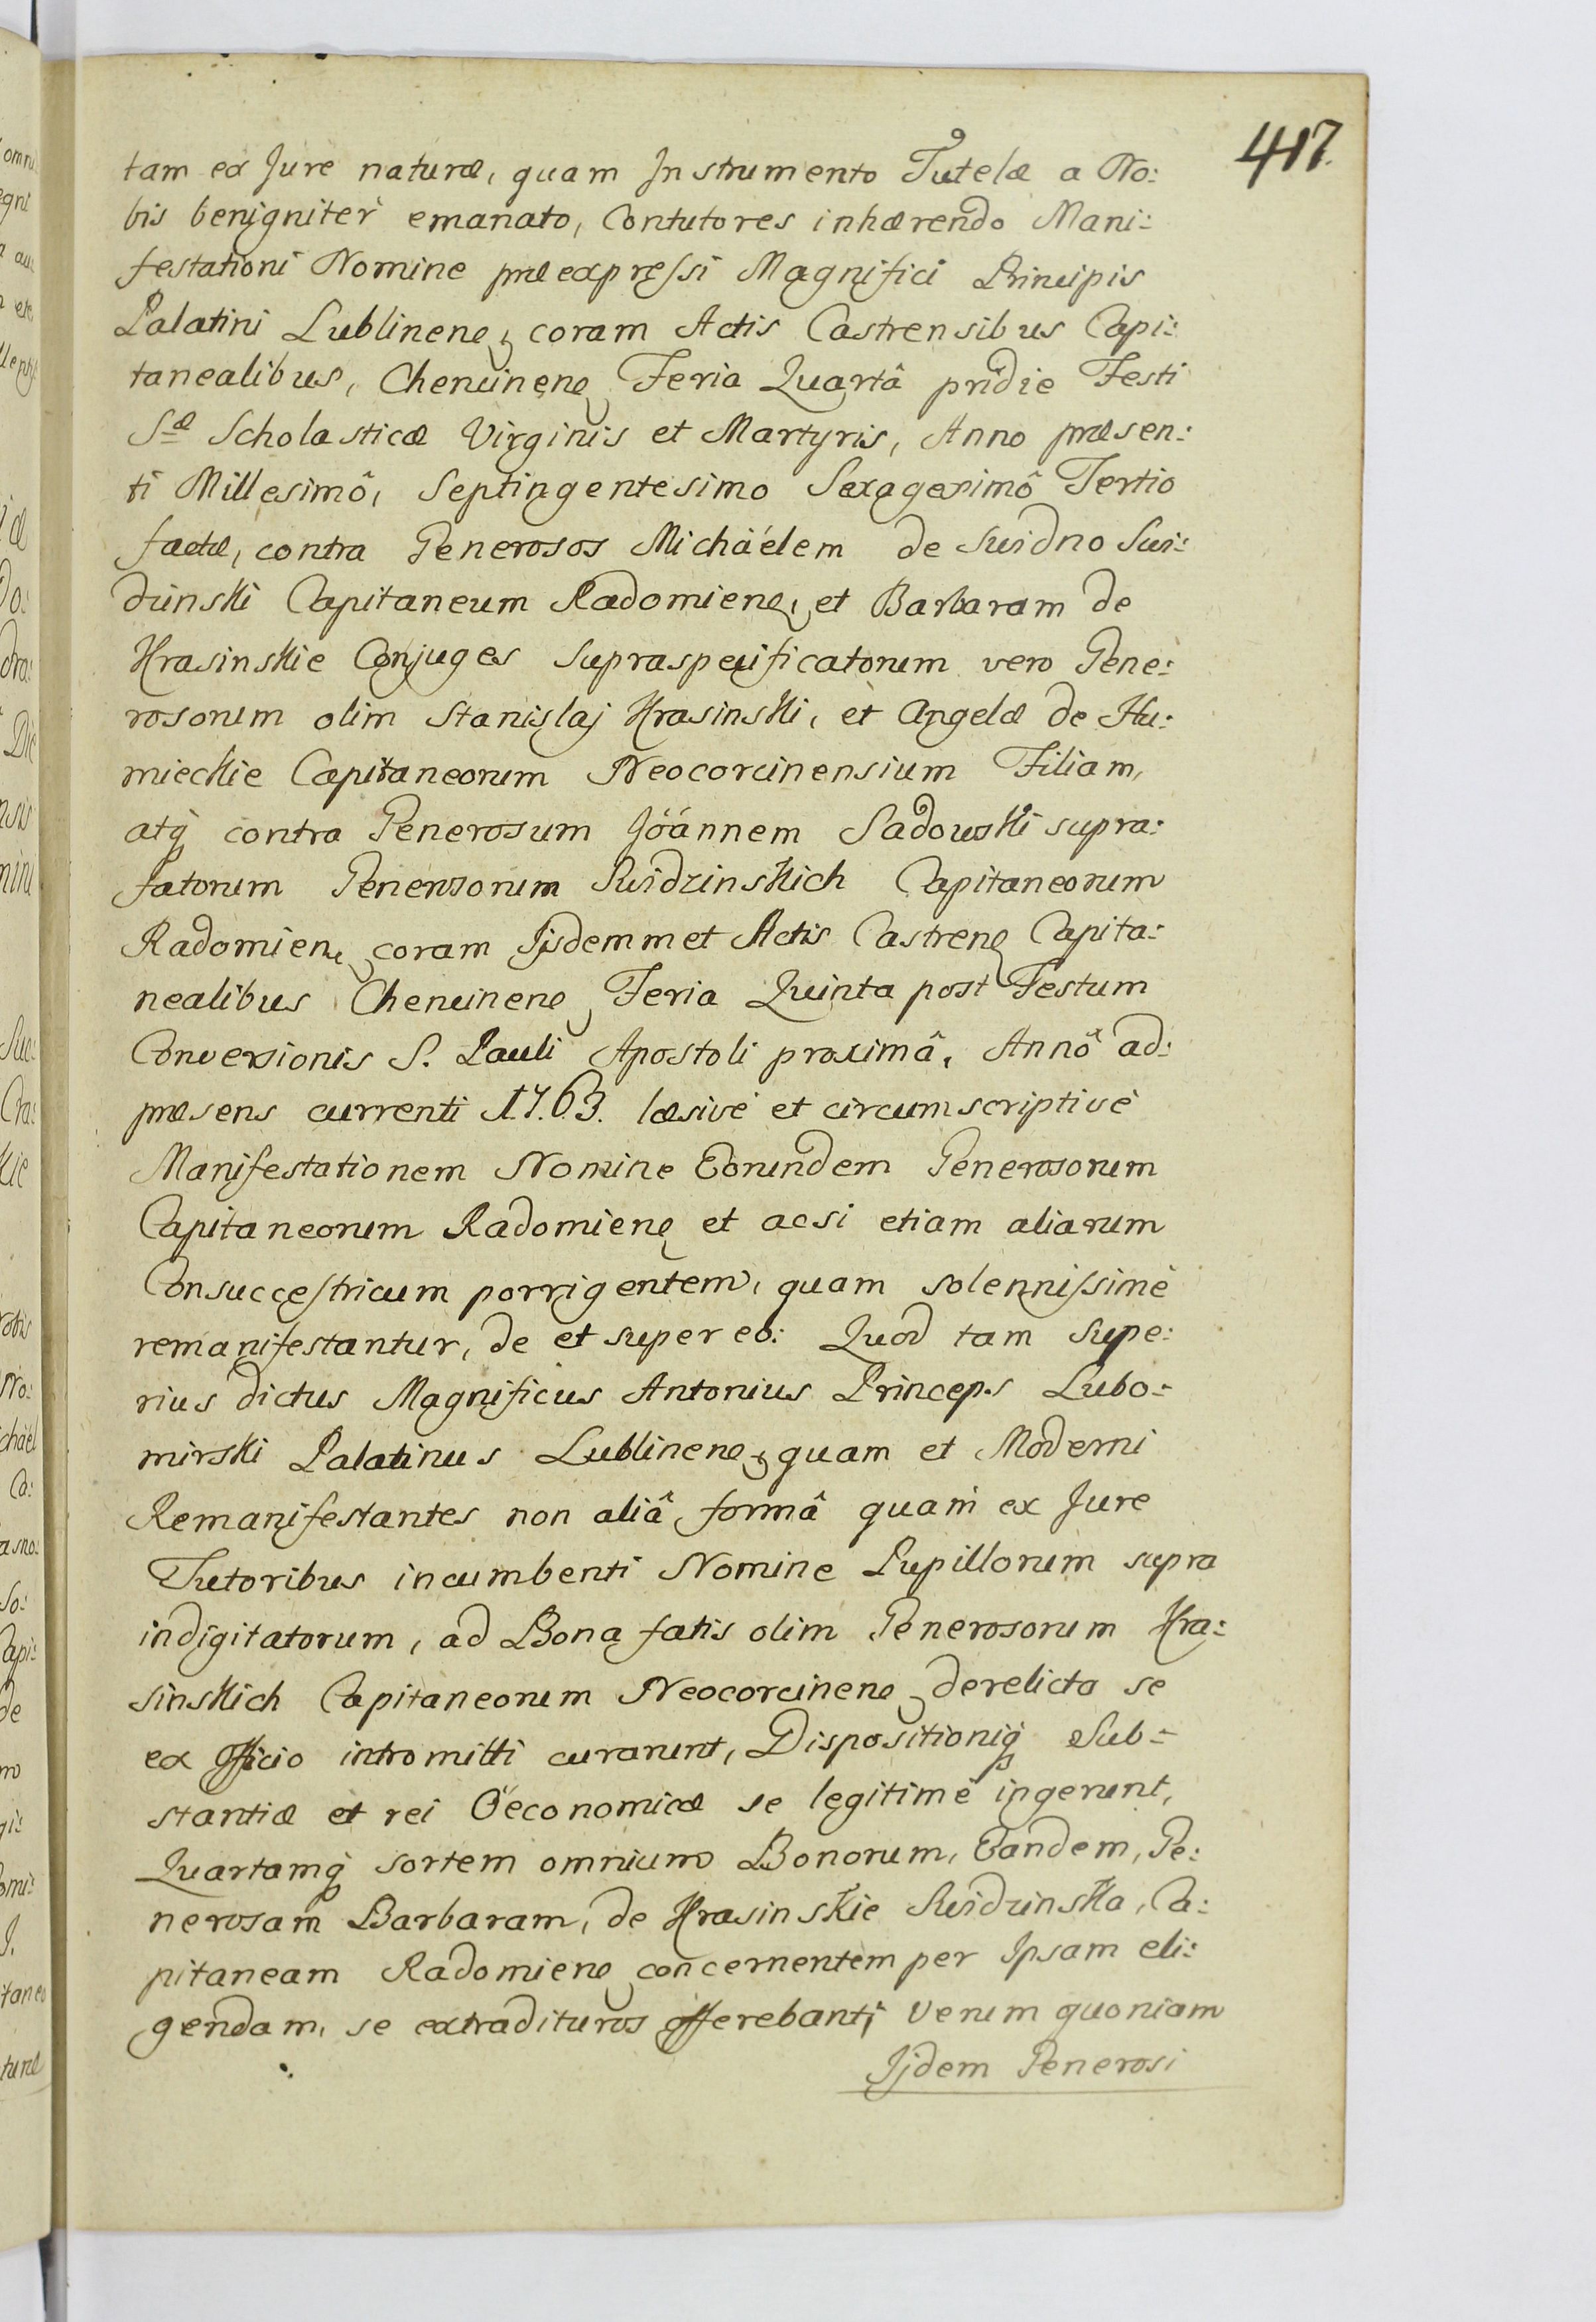 417.
tam ex Jure naturæ, quam Instrumento Tutelæ a No:
bis benigniter emanato, Contutores inhærendo Mani:
festationi Nomine præexpressi Magnifici Principis
Palatini Lublinene, coram Actis Castrensibus Capi:
tanealibus, Chencinene, Feria Quartâ pridie Festi
Sæ Scholasticæ Virginis et Martyris, Anno præsen:
ti Millesimô, Septingentesimo Sexagesimô Tertio
factæ, contra Generosos Michäélem de Swidno Swi:
dzinski Capitaneum Radomiene, et Barbaram de
Krasinskie Conjuges Supraspecificatorum vero Gene:
rosorum olim Stanislaj Krasinski, et Angelæ de Hu:
mieckie Capitaneorum Neocorcinensium Filiam,
atq contra Generosum Jöánnem Sadowski supra:
fatorum Generosorum Swidzinskich Capitaneorum
Radomiene, coram Jisdemmet Actis Castrene Capita:
nealibus Chencinene, Feria Quinta post Festum
Conversionis S. Pauli Apostoli proximâ, Annô ad:
præsens currenti 1763. læsivè et circumscriptivè
Manifestationem Nomine Eorundem Generosorum
Capitaneorum Radomiene et acsi etiam aliarum
Consuccestricum porrigentem, quam solennissimè
remanifestantur, de et super eo: Quod tam Supe:
rius dictus Magnificus Antonius Princeps Lubo:
mirski Palatinus Lublinene, quam et Moderni
Remanifestantes non aliâ formâ quam ex Jure
Tutoribus incumbenti Nomine Pupillorum supra
indigitatorum, ad Bona fatis olim Generosorum Kra:
sinskich Capitaneorum Neocorcinene, derelicta se
ex officio intromitti curarunt, Dispositioniq Sub:
stantiæ et rei Öeconomicæ se legitimè ingerunt,
Quartamq sortem omnium Bonorum, Eandem, Ge:
nerosam Barbaram, de Krasinskie Swidzinska, Ca:
pitaneam Radomiene, concernentem per Ipsam eli:
gendam, se extradituros offerebant; Verum quoniam
Jidem Generosi